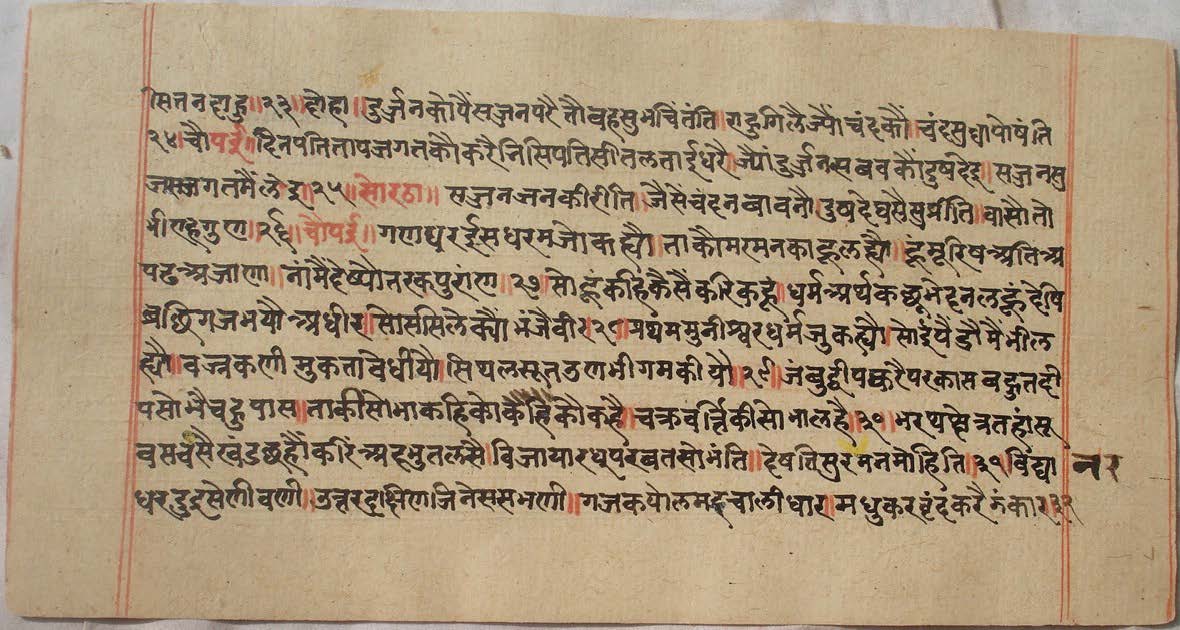 ॥२३॥ दोहा॥ दुर्ज्जनकोपैंसज्जनपरै तौवहसुभचिंतंति॥ राहुगिलैज्यौंचंदकौं॥ चंदसुधापोषंति
२४॥ चौपई॥ दिनपतितापजगतकौंकरै निसिपतिसीतलताईधरै॥ ज्यौंदुर्ज्जनसबबकौंदुषदेइ॥ सज्जनसु
जसजगतमैंलेइ॥ २५॥ सोरठा॥ सज्जनजनकीरीति॥ जैसेंचंदनबावनौ॥ दुषदेंघसैसुप्रीति॥ वासौतो
२६॥ चौपई॥ गणधरईसधरमजोकह्यौ॥ ताकौमरमनकाहूलह्यौ॥ हूंमूरिषअतिअ
पढअजाण॥ नांमैंदेष्यौतरकपुरांण॥ २७॥ सोहूंकहिकैसैंकरिकहूं॥ धर्मअर्थकछुभेदनलहूं॥ देषि
गजभयौअधीर॥ सोससिलेक्यौंभंजैवीर॥ २८॥ प्रथममुनीस्वरधर्मजुकह्यौ॥ सोईपैंडौमैभील
ह्यौ॥ वज्रकणीमुकताबिधीयौ॥ सिथलसूततणभीगमकीयौ॥ २९॥ जंबुद्वीपकरैपरकासबहुतदी
पसोभैचहुपास॥ ताकीसोभाकहिकोकहै॥ चक्रवर्त्तिकीसोभालहै॥ ३०॥ भरथषेत्रतहांसु
वसवसैखंडछहौंकरिंअदभुतलसै॥ विजयारधपरवतसोभंति॥ देषतसुरमनमोहिति॥ ३१॥ विद्या
धरदुदुसेणीवणी॥ उत्तरदक्षिणजिनेससभणी॥ गजकपोलमदचालीधार॥ मधुकरवृंदकरैगुंकार ३२